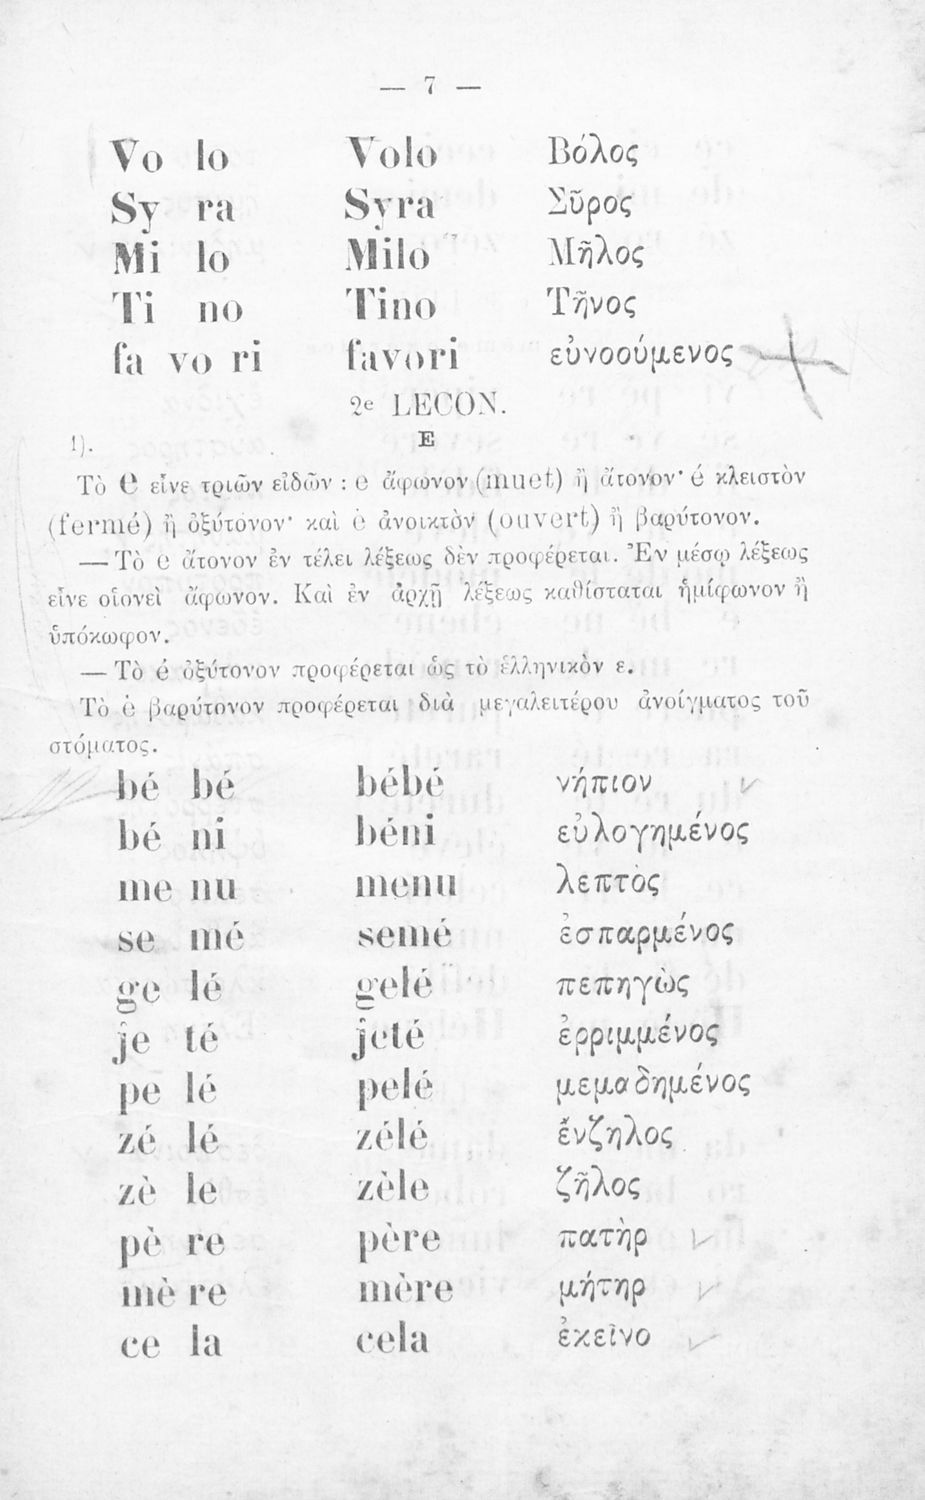 — 7 —
Vo lo Volo Βόλος
Sy ra Syra Σῦρος
Mi lo Milo Μῆλος
Ti no Tino Τῆνος
fa vo ri favori εὐνοούμενος
2e LECON.
1). E
Τὸ e εἶνε τριῶν εἰδῶν : e ἄφωνον (muet) ἢ ἄτονον· é κλειστὸν
(fermé) ἢ ὀξύτονον· καὶ è ἀνοικτὸν (ouvert) ἢ βαρύτονον.
— Τὸ e ἄτονον ἐν τέλει λέξεως δὲν προφέρεται. Ἐν μέσῳ λέξεως
εἶνε οἱονεὶ ἄφωνον. Καὶ ἐν ἀρχῇ λέξεως καθίσταται ἡμίφωνον ἢ
ὑπόκωφον.
— Τὸ é ὀξύτονον προφέρεται ὡς τὸ ἑλληνικὸν ε.
Τὸ è βαρύτονον προφέρεται διὰ μεγαλειτέρου ἀνοίγματος τοῦ
στόματος.
bé bé bébé νήπιον
bé ni béni εὐλογημένος
me nu menu λεπτὸς
se mé semé ἐσπαρμένος
ge lé gelé πεπηγὼς
je té jeté ἐρριμμένος
pe lé pelé μεμαδημένος
zé lé zélé ἔνζηλος
zè le zèle ζῆλος
pè re père πατὴρ
mè re mère μήτηρ
ce la cela ἐκεῖνο